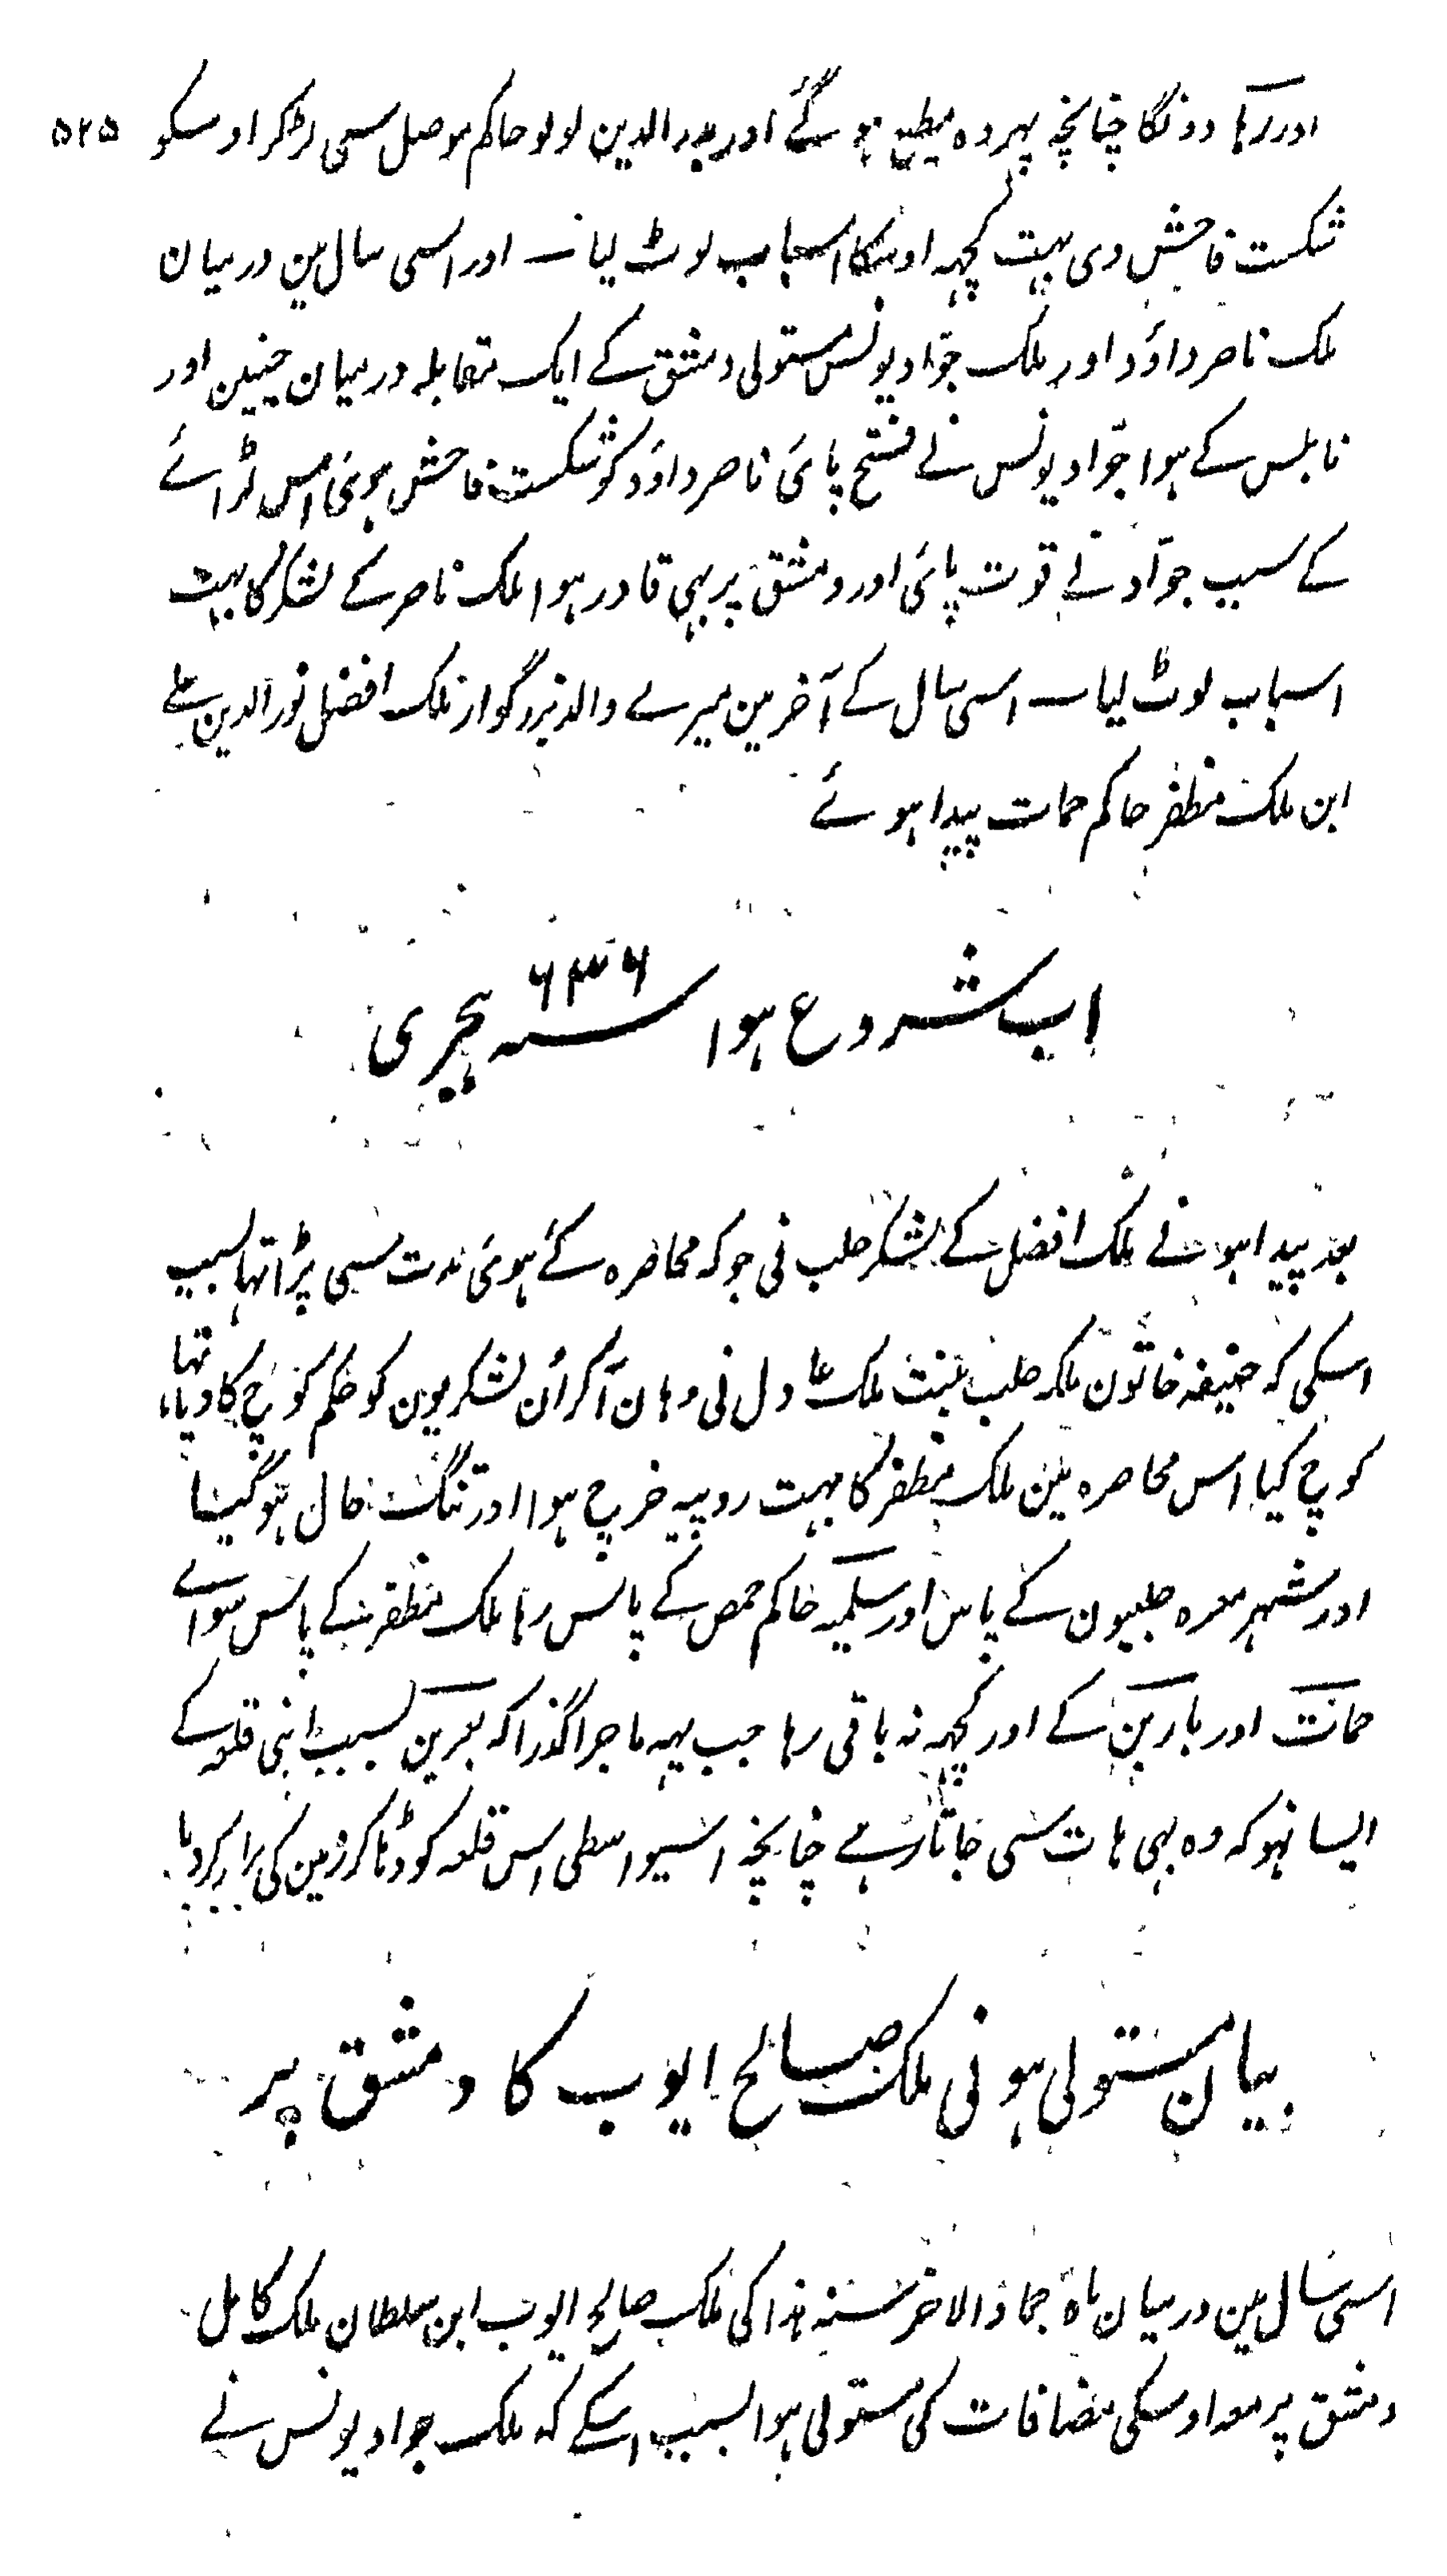 اور رہا دونگا چنانچہ پہر وہ مطیع ہو گئے اور بدر الدین لولو حاکم موصل سی لڑکر اوسکو ۵۲۵
شکست فاحش دی بہت کچہہ اوسکا اسباب لوٹ لیا ۔ اور اسی سال مین درمیان
ملک ناصر داؤد اور ملک جوّاد یونس مستولی دمشق کے ایک مقابلہ درمیان جنین اور
نابلس کے ہوا جوّاد یونس نے فتح پائی ناصر داؤد کو شکست فاحش ہوئی اس لڑائے
کے سبب جوّاد نے قوت پائی اور دمشق پر بہی قادر ہوا ملک ناصر کے لشکر کا بہت
اسباب لوٹ لیا ۔ اسی سال کے آخر مین میرے والد بزرگوار ملک افضل نور الدین علے
ابن ملک مظفر حاکم حمات پیدا ہوئے
اب شروع ہوا سنہ ۶۳۶ ہجری
بعد پیدا ہونے ملک افضل کے لشکر حلب نی جو کہ محاصرہ کئے ہوئی مدت سی پڑا تہا بسبب
اسکی کہ ضیفہ خاتون ملکہ حلب بنت ملک عادل نی وہان آکر اُن لشکریون کو حکم کوچ کا دیا تہا
کوچ کیا اس محاصرہ مین ملک مظفر کا بہت روپیہ خرچ ہوا اور تنگ حال ہو گیا
اور شہر معرہ حلبیون کے پاس اور سلمیہ حاکم حمص کے پاس رہا ملک مظفر کے پاس سوائے
حمات اور بارین کے اور کچہہ نہ باقی رہا جب یہہ ماجرا گذرا کہ بعرین بسبب اپنی قلعہ کے
ایسا نہو کہ وہ بہی ہات سی جاتا رہے چنانچہ اسیواسطی اس قلعہ کو ڈہاکر زمین کی برابر کردیا
بیان مستولی ہونی ملک صالح ایوب کا دمشق پر
اسی سال مین درمیان ماہ جماد الاخر سنہ ہذا کی ملک صالح ایوب ابن سلطان ملک کامل
دمشق پر معہ اوسکی مضافات کی مستولی ہوا بسبب اسکے کہ ملک جواد یونس نے